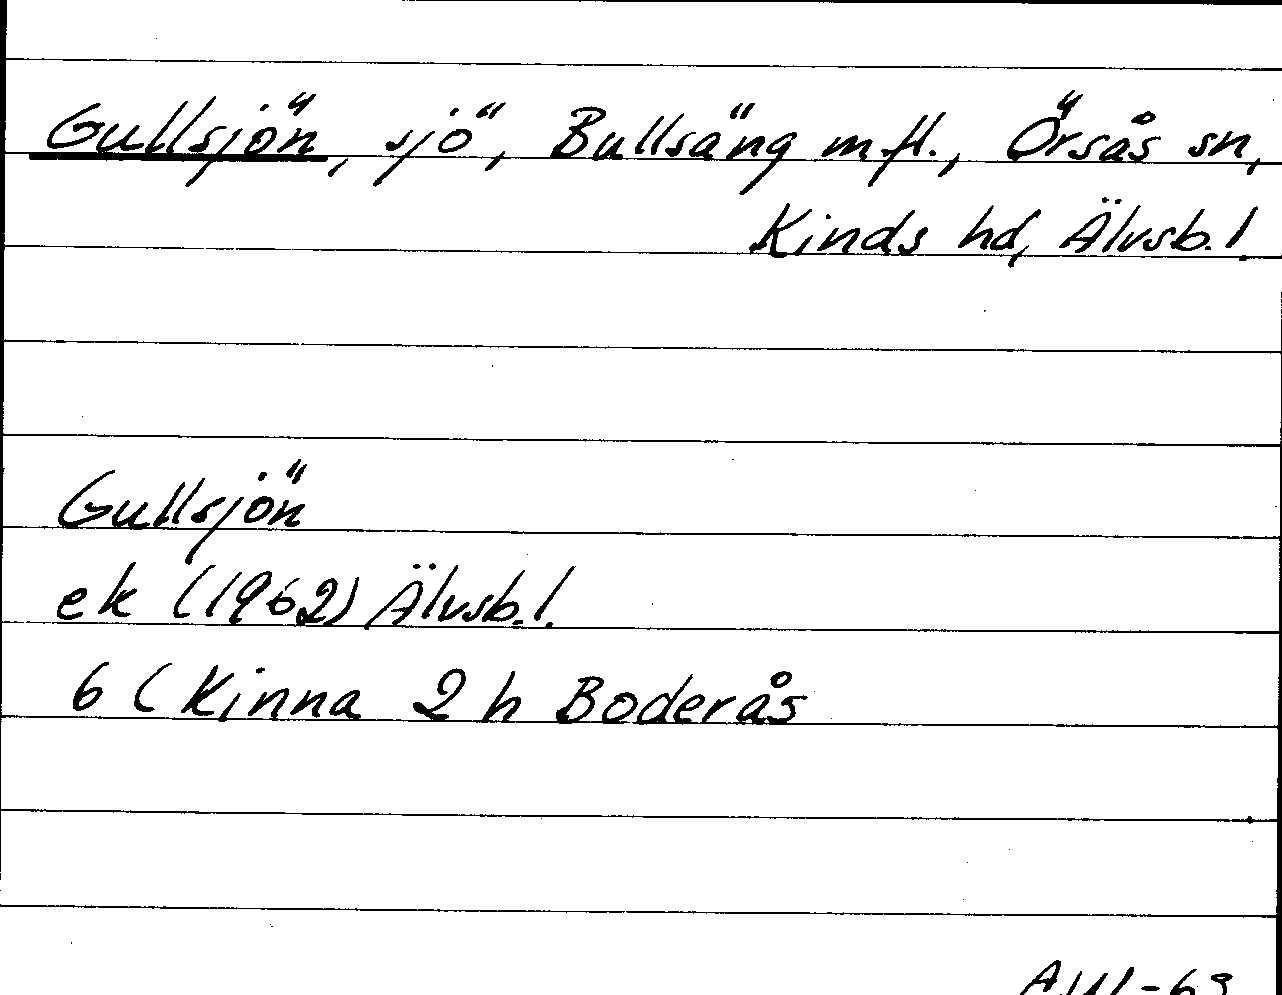 Gullsjön, sjö, Bullsäng m.fl., Örsås sn,
Kinds hd, Älvsb. l.
Gullsjön
ek (1962) Älvsb. l.
6 ( Kinna 2 h Boderås